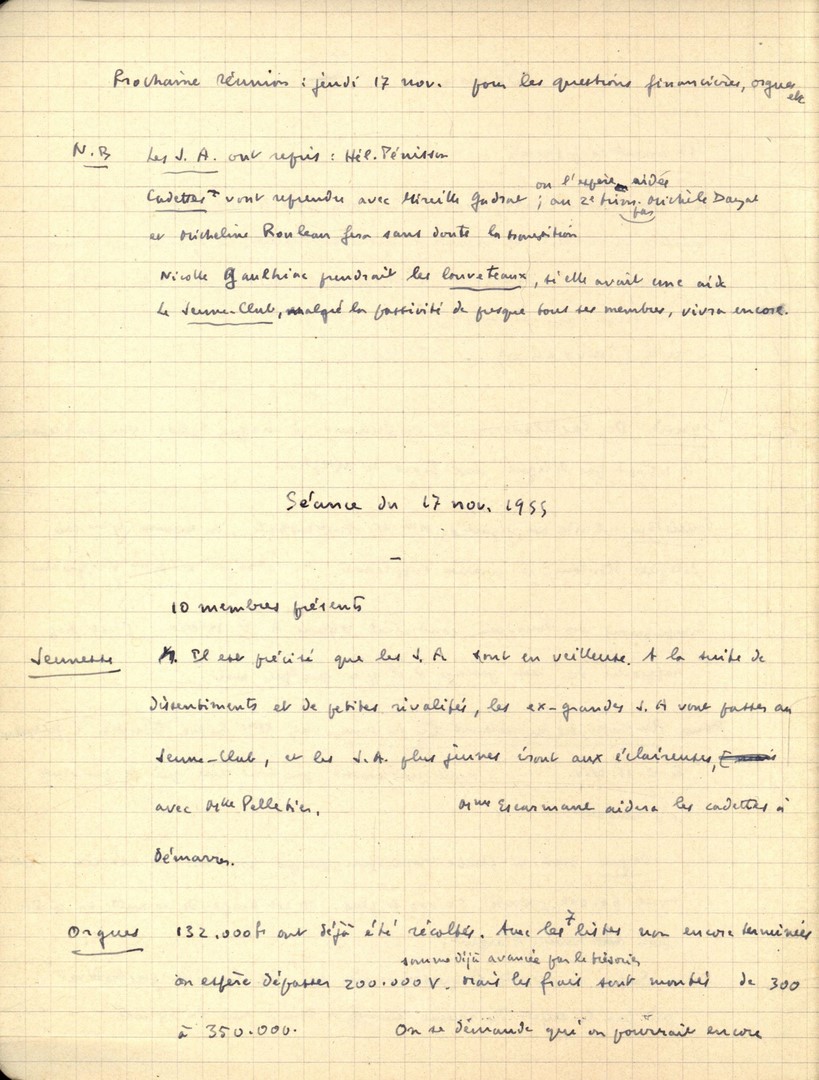 Prochaine réunion : jeudi 17 nov. pour les questions financières, orgues etc
N.B Les J. A. ont repris : Hél. Pénisson
on l'espère aidée
Cadettes vont reprendre avec Mireille Gadrat ; au 2e trim. par Michèle
et Micheline Rouleau fera sans doute la transition
Nicolle Gaulhiac prendrait les louveteaux, si elle avait une aide
Le Jeune-Club, malgré la passivité de presque tous ses membres, vivra encore.
Séance du 17 nov. 1955
10 membres présents
Jeunesse Il est précisé que les J. A sont en veilleuse. A la suite de
dissentiments et de petites rivalités, les ex-grandes J. A vont passer au
Jeune-Club, et les J.A. plus jeunes iront aux éclaireuses,
avec Melle Pelletier. Mme Escarmane aidera les cadettes à
démarrer.
Orgues 132.000frs ont déjà été récoltés. Avec les 7 listes non encore terminées
somme déjà avancée par le trésorier
on espère dépasser 200.000 V. Mais les frais sont montés de 300
à 350.000. On se demande qui on pourrait encore